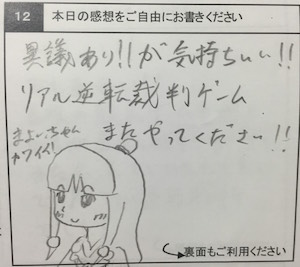 12 本日の感想をご自由にお書きください
異議あり!!が気持ちいい!!
リアル逆転裁判ゲーム
またやってください!!
まよいちゃん
カワイイ!
裏面もご利用ください